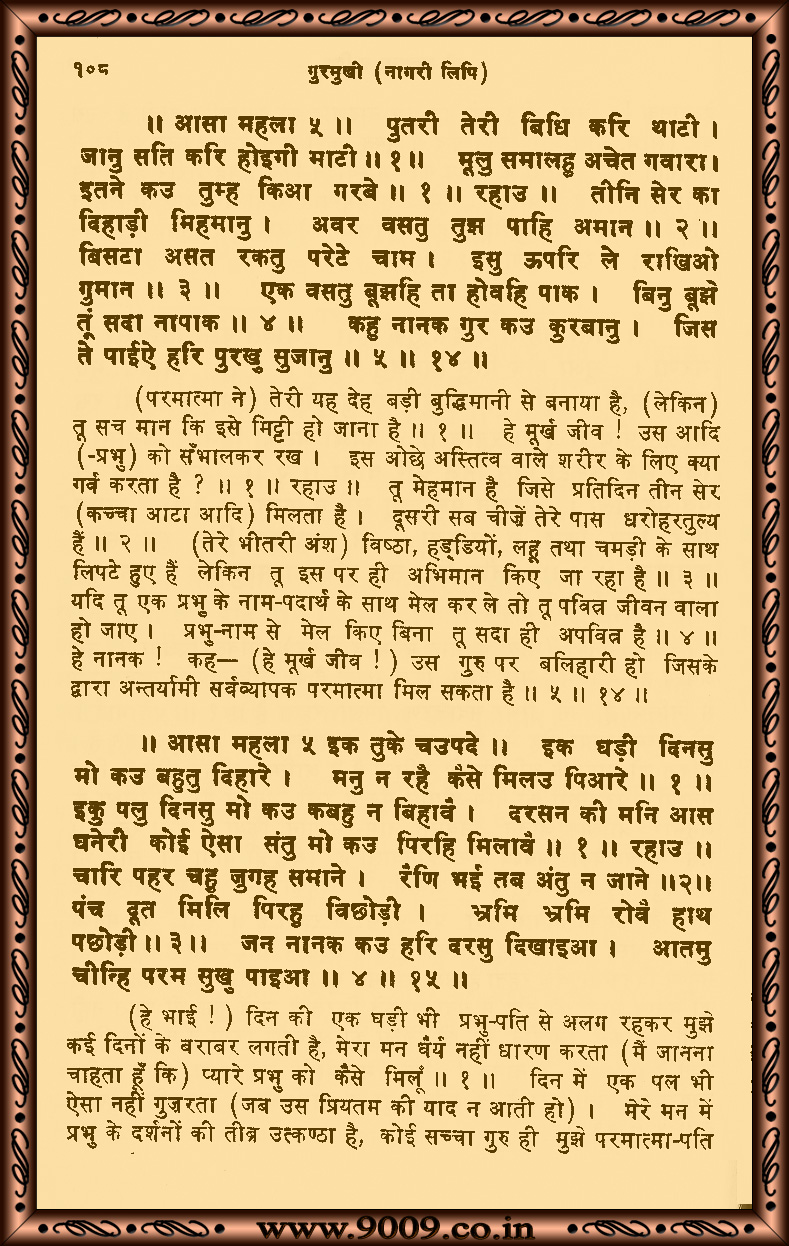 १०८ गुरमुखी (नागरी लिपि)
॥ आसा महला ५ ॥ पुतरी तेरी बिधि करि थाटी ।
जानु सति करि होइगी माटी ॥ १ ॥ मूलु समालहु अचेत गवारा ।
इतने कउ तुम्ह किआ गरबे ॥ १ ॥ रहाउ ॥ तीनि सेर का
दिहाड़ी मिहमानु । अवर वसतु तुझ पाहि अमान ॥ २ ॥
बिसटा असत रकतु परेटे चाम । इसु ऊपरि ले राखिओ
गुमान ॥ ३ ॥ एक वसतु बूझहि ता होवहि पाक । बिनु बूझे
तूं सदा नापाक ॥ ४ ॥ कहु नानक गुर कउ कुरबानु । जिस
ते पाईऐ हरि पुरखु सुजानु ॥ ५ ॥ १४ ॥
(परमात्मा ने) तेरी यह देह बड़ी बुद्धिमानी से बनाया है, (लेकिन)
तू सच मान कि इसे मिट्टी हो जाना है ॥ १ ॥ हे मूर्ख जीव ! उस आदि
(-प्रभु) को सँभालकर रख । इस ओछे अस्तित्व वाले शरीर के लिए क्या
गर्व करता है ? ॥ १ ॥ रहाउ ॥ तू मेहमान है जिसे प्रतिदिन तीन सेर
(कच्चा आटा आदि) मिलता है । दूसरी सब चीज़ें तेरे पास धरोहरतुल्य
हैं ॥ २ ॥ (तेरे भीतरी अंश) विष्ठा, हड्डियों, लहू तथा चमड़ी के साथ
लिपटे हुए हैं लेकिन तू इस पर ही अभिमान किए जा रहा है ॥ ३ ॥
यदि तू एक प्रभु के नाम-पदार्थ के साथ मेल कर ले तो तू पवित्र जीवन वाला
हो जाए । प्रभु-नाम से मेल किए बिना तू सदा ही अपवित्र है ॥ ४ ॥
हे नानक ! कह— (हे मूर्ख जीव ! ) उस गुरु पर बलिहारी हो जिसके
द्वारा अन्तर्यामी सर्वव्यापक परमात्मा मिल सकता है ॥ ५ ॥ १४ ॥
॥ आसा महला ५ इक तुके चउपदे ॥ इक घड़ी दिनसु
मो कउ बहुतु दिहारे । मनु न रहै कैसे मिलउ पिआरे ॥ १ ॥
इकु पलु दिनसु मो कउ कबहु न बिहावै । दरसन की मनि आस
घनेरी कोई ऐसा संतु मो कउ पिरहि मिलावै ॥ १ ॥ रहाउ ॥
चारि पहर चहु जुगह समाने । रैणि भई तब अंतु न जाने ॥२॥
पंच दूत मिलि पिरहु विछोड़ी । भ्रमि भ्रमि रोवै हाथ
पछोड़ी ॥ ३ ॥ जन नानक कउ हरि दरसु दिखाइआ । आतमु
चीन्हि परम सुखु पाइआ ॥ ४ ॥ १५ ॥
(हे भाई ! ) दिन की एक घड़ी भी प्रभु-पति से अलग रहकर मुझे
कई दिनों के बराबर लगती है, मेरा मन धैर्य नहीं धारण करता (मैं जानना
चाहता हूँ कि) प्यारे प्रभु को कैसे मिलूं ॥ १ ॥ दिन में एक पल भी
ऐसा नहीं गुज़रता (जब उस प्रियतम की याद न आती हो) । मेरे मन में
प्रभु के दर्शनों की तीव्र उत्कण्ठा है, कोई सच्चा गुरु ही मुझे परमात्मा-पति
www.9009.co.in